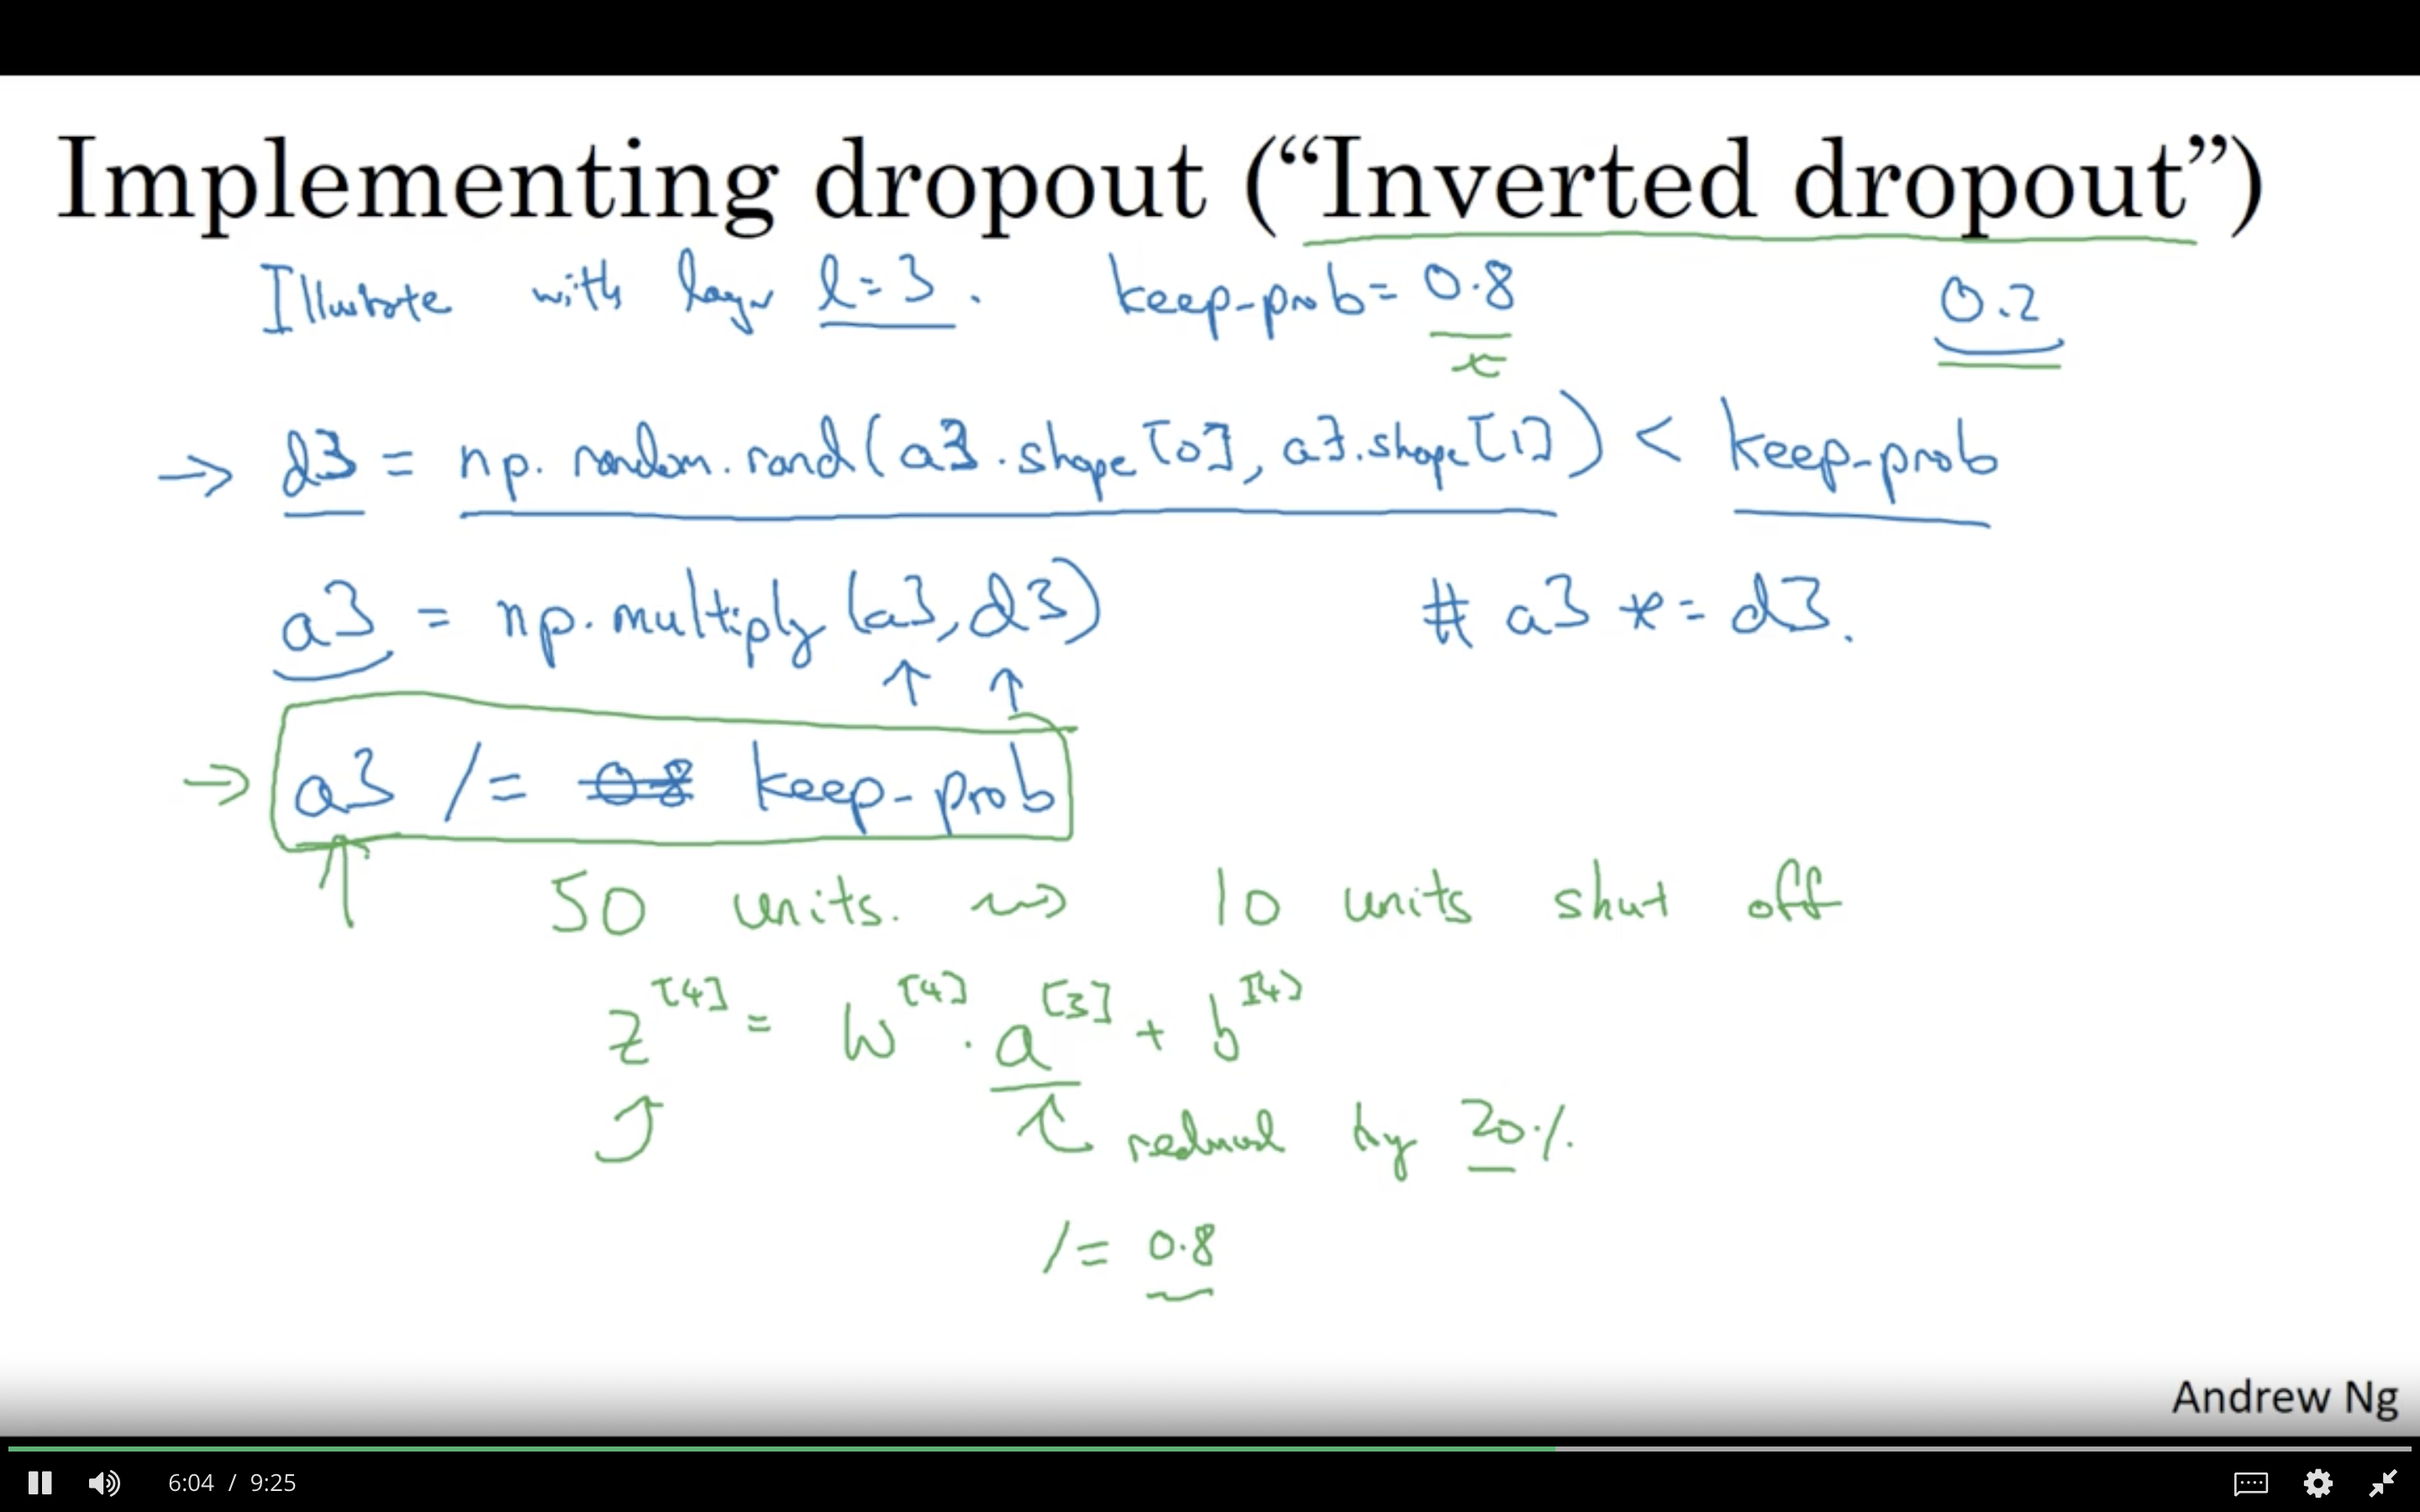 Implementing dropout (“Inverted dropout”)
Illustrate with layer l=3. keep-prob= 0.8 0.2
x
→ d3 = np.random.rand(a3.shape[0], a3.shape[1]) < keep-prob
a3 = np.multiply(a3, d3) # a3 *= d3.
↑ ↑
→ a3 /= 0.8 keep-prob
↑ 50 units. ⇝ 10 units shut off
z^[4] = w^[4] · a^[3] + b^[4]
reduced by 20%.
/= 0.8
Andrew Ng
6:04 / 9:25